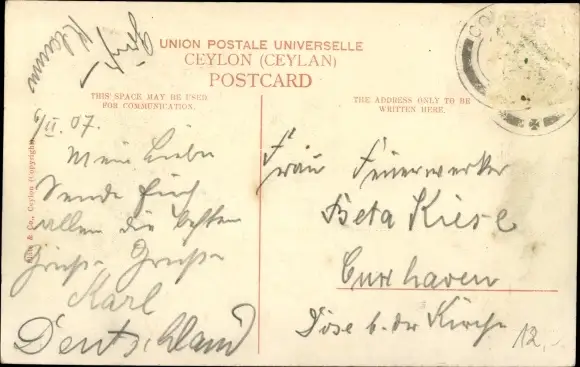 UNION POSTALE UNIVERSELLE
CEYLON (CEYLAN)
POSTCARD
THIS SPACE MAY BE USED
FOR COMMUNICATION.
THE ADDRESS ONLY TO BE
WRITTEN HERE.
& Co., Ceylon (Copyright)
6/II. 07.
Mein Lieber
Sende Euch
allen die besten
Grüße
Karl
Deutschland
Frau Feuerwerker
Beta Kiesl
Cuxhaven
Döse b. der Kirche
12,-